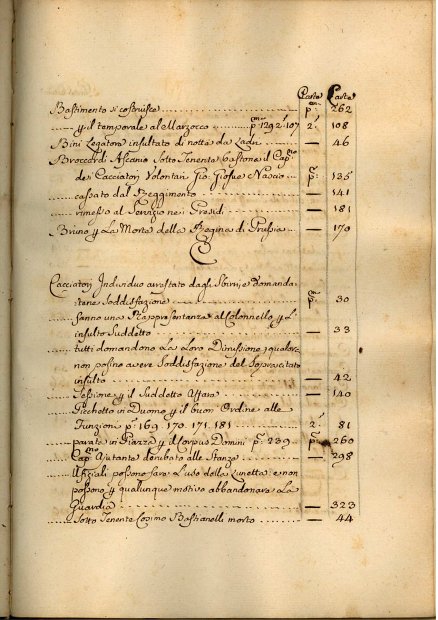 Parte Carte
Bastimento si costruisce p.ma 262
y il temporale al Marzocco p.ma 292 2.107 2.a 108
Bini Legatore insultato di notte da Ladri — 46
Broccardi Ascanio Sotto Tenente bastona il Cap.no
de Cacciatori Volontarj Gio. Giosue Nascio p.a 135
cassato dal Reggimento — 141
rimesso al Servizio ne Presidj — 181
Bruno y La Morte della Regina di Prussia — 170
C
Cacciatorj Individuo arrestato dagli Sbirri, e domanda
tene Soddisfazione p.ma 30
fanno una Rappresentanza al Colonnello y L'
Insulto Suddetto — 33
tutti domandono La Loro Dimissione, qualor
non possino avere Soddisfazione del Sopracitato
insulto — 42
Sessione y il Suddetto Affare — 140
Picchetto in Duomo y il buon Ordine alle
Funzioni p.a 169. 170. 171. 181 2.a 81
parate in Piazza y il Corpus Domini p.a 239 p.a 260
Cap.no Ajutante deputato alle Stanze — 298
Ufficiali possono fare L'uso della Lunetta: e non
possono y qualunque motivo abbandonare La
Guardia — 323
Sotto Tenente Cosimo Bastianelli morto — 44